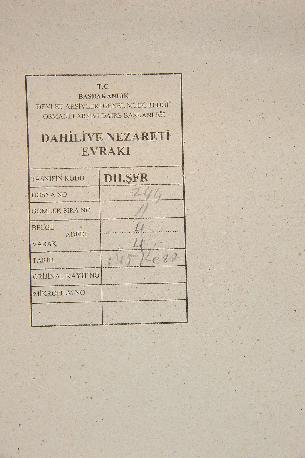 T.C
BAŞBAKANLIK
DEVLET ARŞİVLERİ GENEL MÜDÜRLÜĞÜ
OSMANLI ARŞİVİ DAİRE BAŞKANLIĞI
DAHİLİYE NEZARETİ
EVRAKI
TASNİFİN KODU DH.ŞFR
DOSYA NO
GÖMLEK SIRA NO
BELGE
ADEDİ 4
VARAK 4
TARİH
ORİJİNAL KAYIT NO
MİKROFİLM NO